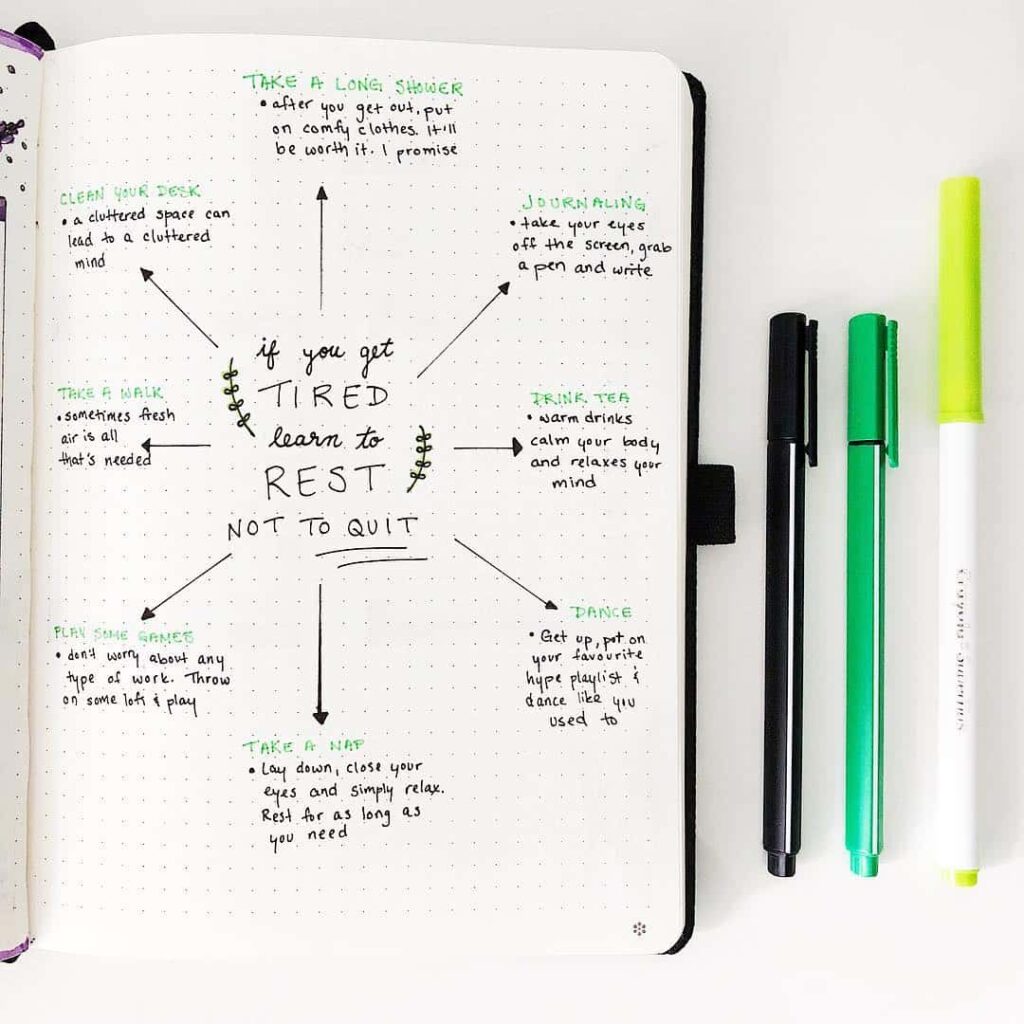 TAKE A LONG SHOWER
• after you get out, put
on comfy clothes. It'll
be worth it. I promise
CLEAN YOUR DESK
• a cluttered space can
lead to a cluttered
mind
JOURNALING
• take your eyes
off the screen, grab
a pen and write
if you get
TIRED
learn to
REST
NOT TO QUIT
TAKE A WALK
• sometimes fresh
air is all
that's needed
DRINK TEA
• warm drinks
calm your body
and relaxes your
mind
PLAY SOME GAMES
• don't worry about any
type of work. Throw
on some lofi & play
DANCE
• Get up, put on
your favourite
hype playlist &
dance like you
used to
TAKE A NAP
• Lay down, close your
eyes and simply relax.
Rest for as long as
you need